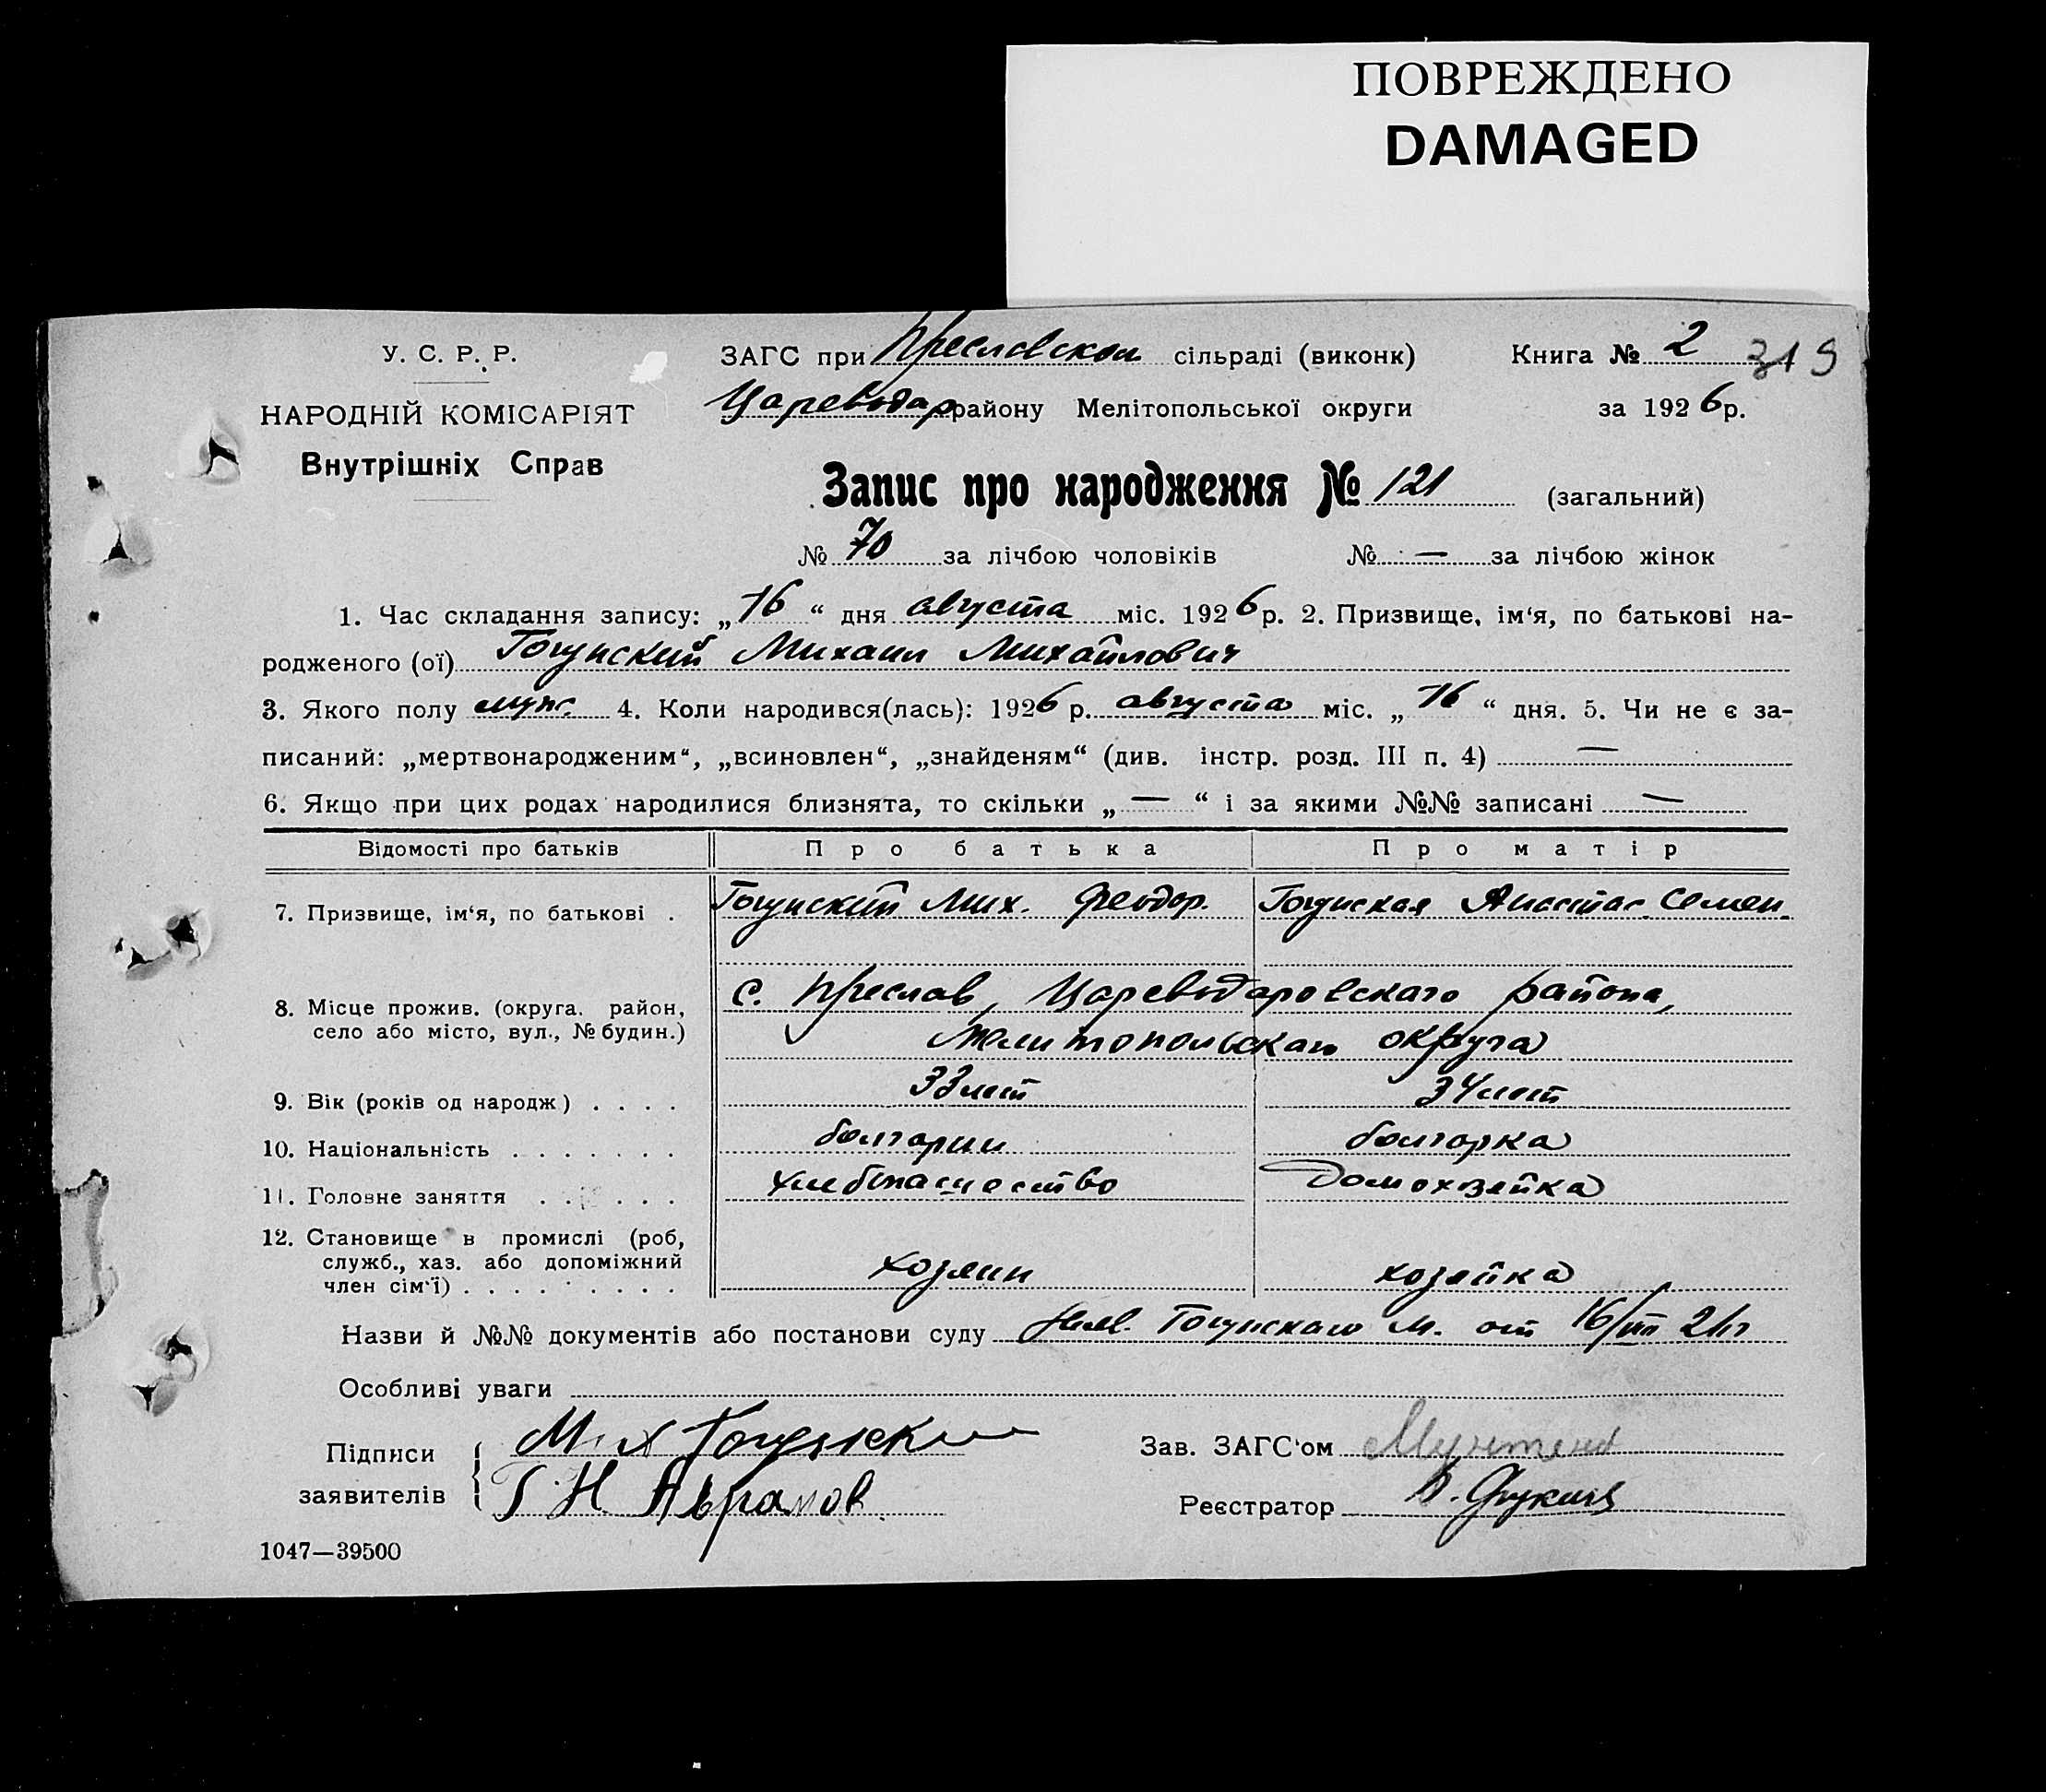 ПОВРЕЖДЕНО
DAMAGED
У. С. Р. Р.
НАРОДНІЙ КОМІСАРІЯТ
Внутрішніх Справ
ЗАГС при Преславском сільраді (виконк) Книга № 2 319
Цареводар району Мелітопольської округи за 1926 р.
Запис про народження № 121 (загальний)
№ 70 за лічбою чоловіків № — за лічбою жінок
1. Час складання запису: „16“ дня августа міс. 1926 р. 2. Призвище, ім‘я, по батькові на-
родженого (ої) Гогунский Михаил Михайлович
3. Якого полу муж. 4. Коли народився(лась): 1926 р. августа міс. „16“ дня. 5. Чи не є за-
писаний: „мертвонародженим“, „всиновлен“, „знайденям“ (див. інстр. розд. III п. 4) —
6. Якщо при цих родах народилися близнята, то скільки „—“ і за якими №№ записані —
Відомості про батьків Про батька Про матір
7. Призвище, ім‘я, по батькові . Гогунский Мих. Феодор. Гогунская Анастас. Семен.
8. Місце прожив. (округа. район, село або місто, вул., № будин.) с. Преслав, Цареводаровского района,
Мелитопольскаго округа
9. Вік (років од народж) . . . . 33 лет 34 лет
10. Національність . . . . . . . болгарин болгарка
11. Головне заняття . . . . . . хлебопашество домохозяйка
12. Становище в промислі (роб,
служб., хаз. або допоміжний
член сім‘ї) . . . . . . . . . хозяин хозяйка
Назви й №№ документів або постанови суду Гогунскаго М. от 16/VIII 26 г
Особливі уваги
Підписи Мих Гогунский Зав. ЗАГС‘ом
заявителів Г. Н Абрамов Реєстратор
1047—39500